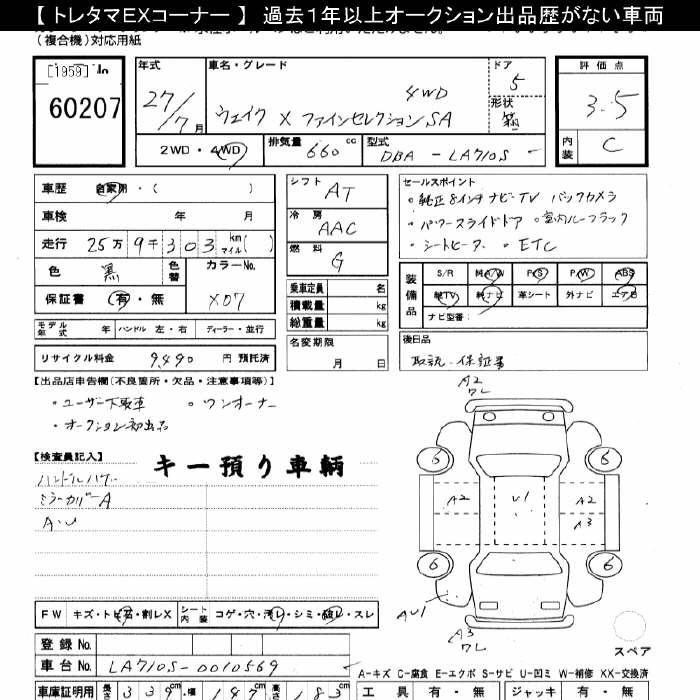 【 トレタマEXコーナー 】 過去1年以上オークション出品歴がない車両
(複合機)対応用紙
[1959]
60207
年式
27/7月
車名・グレード
4WD
ウェイク X ファインセレクションSA
ドア
5
形状
箱
評価点
3.5
内装
C
2WD・4WD
排気量 660 cc
型式
DBA - LA710S -
車歴 自家用・( )
車検 年 月
走行 25万9千303 km マイル ( )
色 黒
色替
カラーNo.
X07
保証書 有・無
モデル年式 年
ハンドル 左・右
ディーラー・並行
リサイクル料金 9,490 円 預託済
シフト AT
冷房 AAC
燃料 G
乗車定員 名
積載量 kg
総重量 kg
名変期限
月 日
セールスポイント
・純正8インチナビ-TV バックカメラ
・パワースライドドア ・室内ルーフラック
・シートヒーター ・ETC
装備品
S/R A/W P/S P/W ABS
純TV 純ナビ 革シート 外ナビ エアB
ナビ型番:
後日品
取説・保証書
【出品店申告欄(不良箇所・欠品・注意事項等)】
・ユーザー下取車 ・ワンオーナー
・オークション初出品
【検査員記入】
キー預り車輌
ミラーカバーA
A・U
A2
6 6
A2 U1 A2
A3
6 6
AU1
A3
スペア
FW キズ・トビ石・割レX
シート内装 コゲ・穴・汚レ・シミ・破レ・スレ
登録 No.
車台 No. LA710S-0010569
A-キズ C-腐食 E-エクボ S-サビ U-凹ミ W-補修 XX-交換済
車庫証明用 長さ 339cm 幅 147cm 高さ 183cm
工具 有・無 ジャッキ 有・無